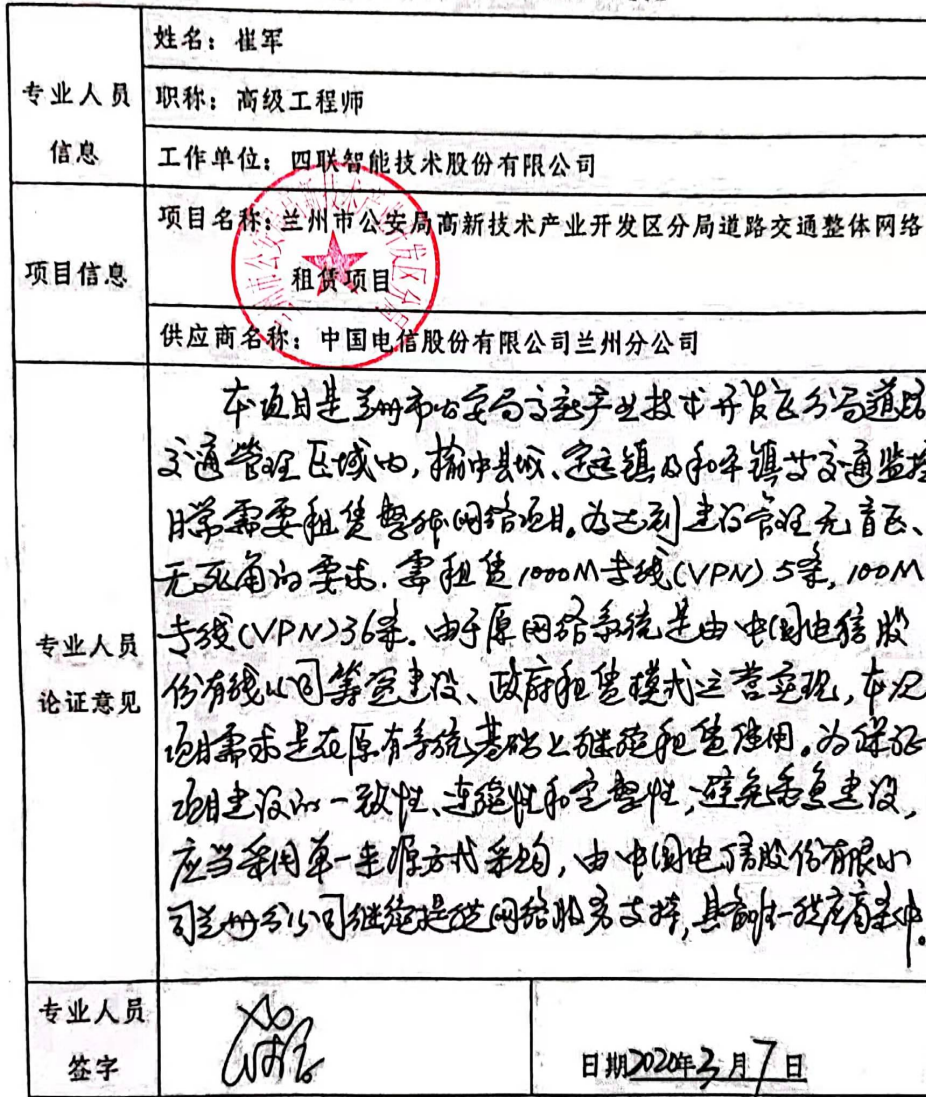 专业人员
信息
姓名：崔军
职称：高级工程师
工作单位：四联智能技术股份有限公司
项目信息
项目名称：兰州市公安局高新技术产业开发区分局道路交通整体网络
租赁项目
供应商名称：中国电信股份有限公司兰州分公司
专业人员
论证意见
本项目是兰州市公安局高新产业技术开发区分局道路
交通管理区域内，榆中县城、定远镇及和平镇等交通监控
日常需要租赁整体网络项目。为达到建设管理无盲区、
无死角的要求，需租赁1000M专线(VPN)5条，100M
专线(VPN)36条。由于原网络系统是由中国电信股
份有线公司筹资建设、政府租赁模式运营实现，本次
项目需求是在原有系统基础上继续租赁使用。为保证
项目建设的一致性、连续性和完整性，避免重复建设，
应当采用单一来源方式采购，由中国电信股份有限公
司兰州分公司继续提供网络服务支持，具备唯一供应商条件。
专业人员
签字
日期2020年3月7日